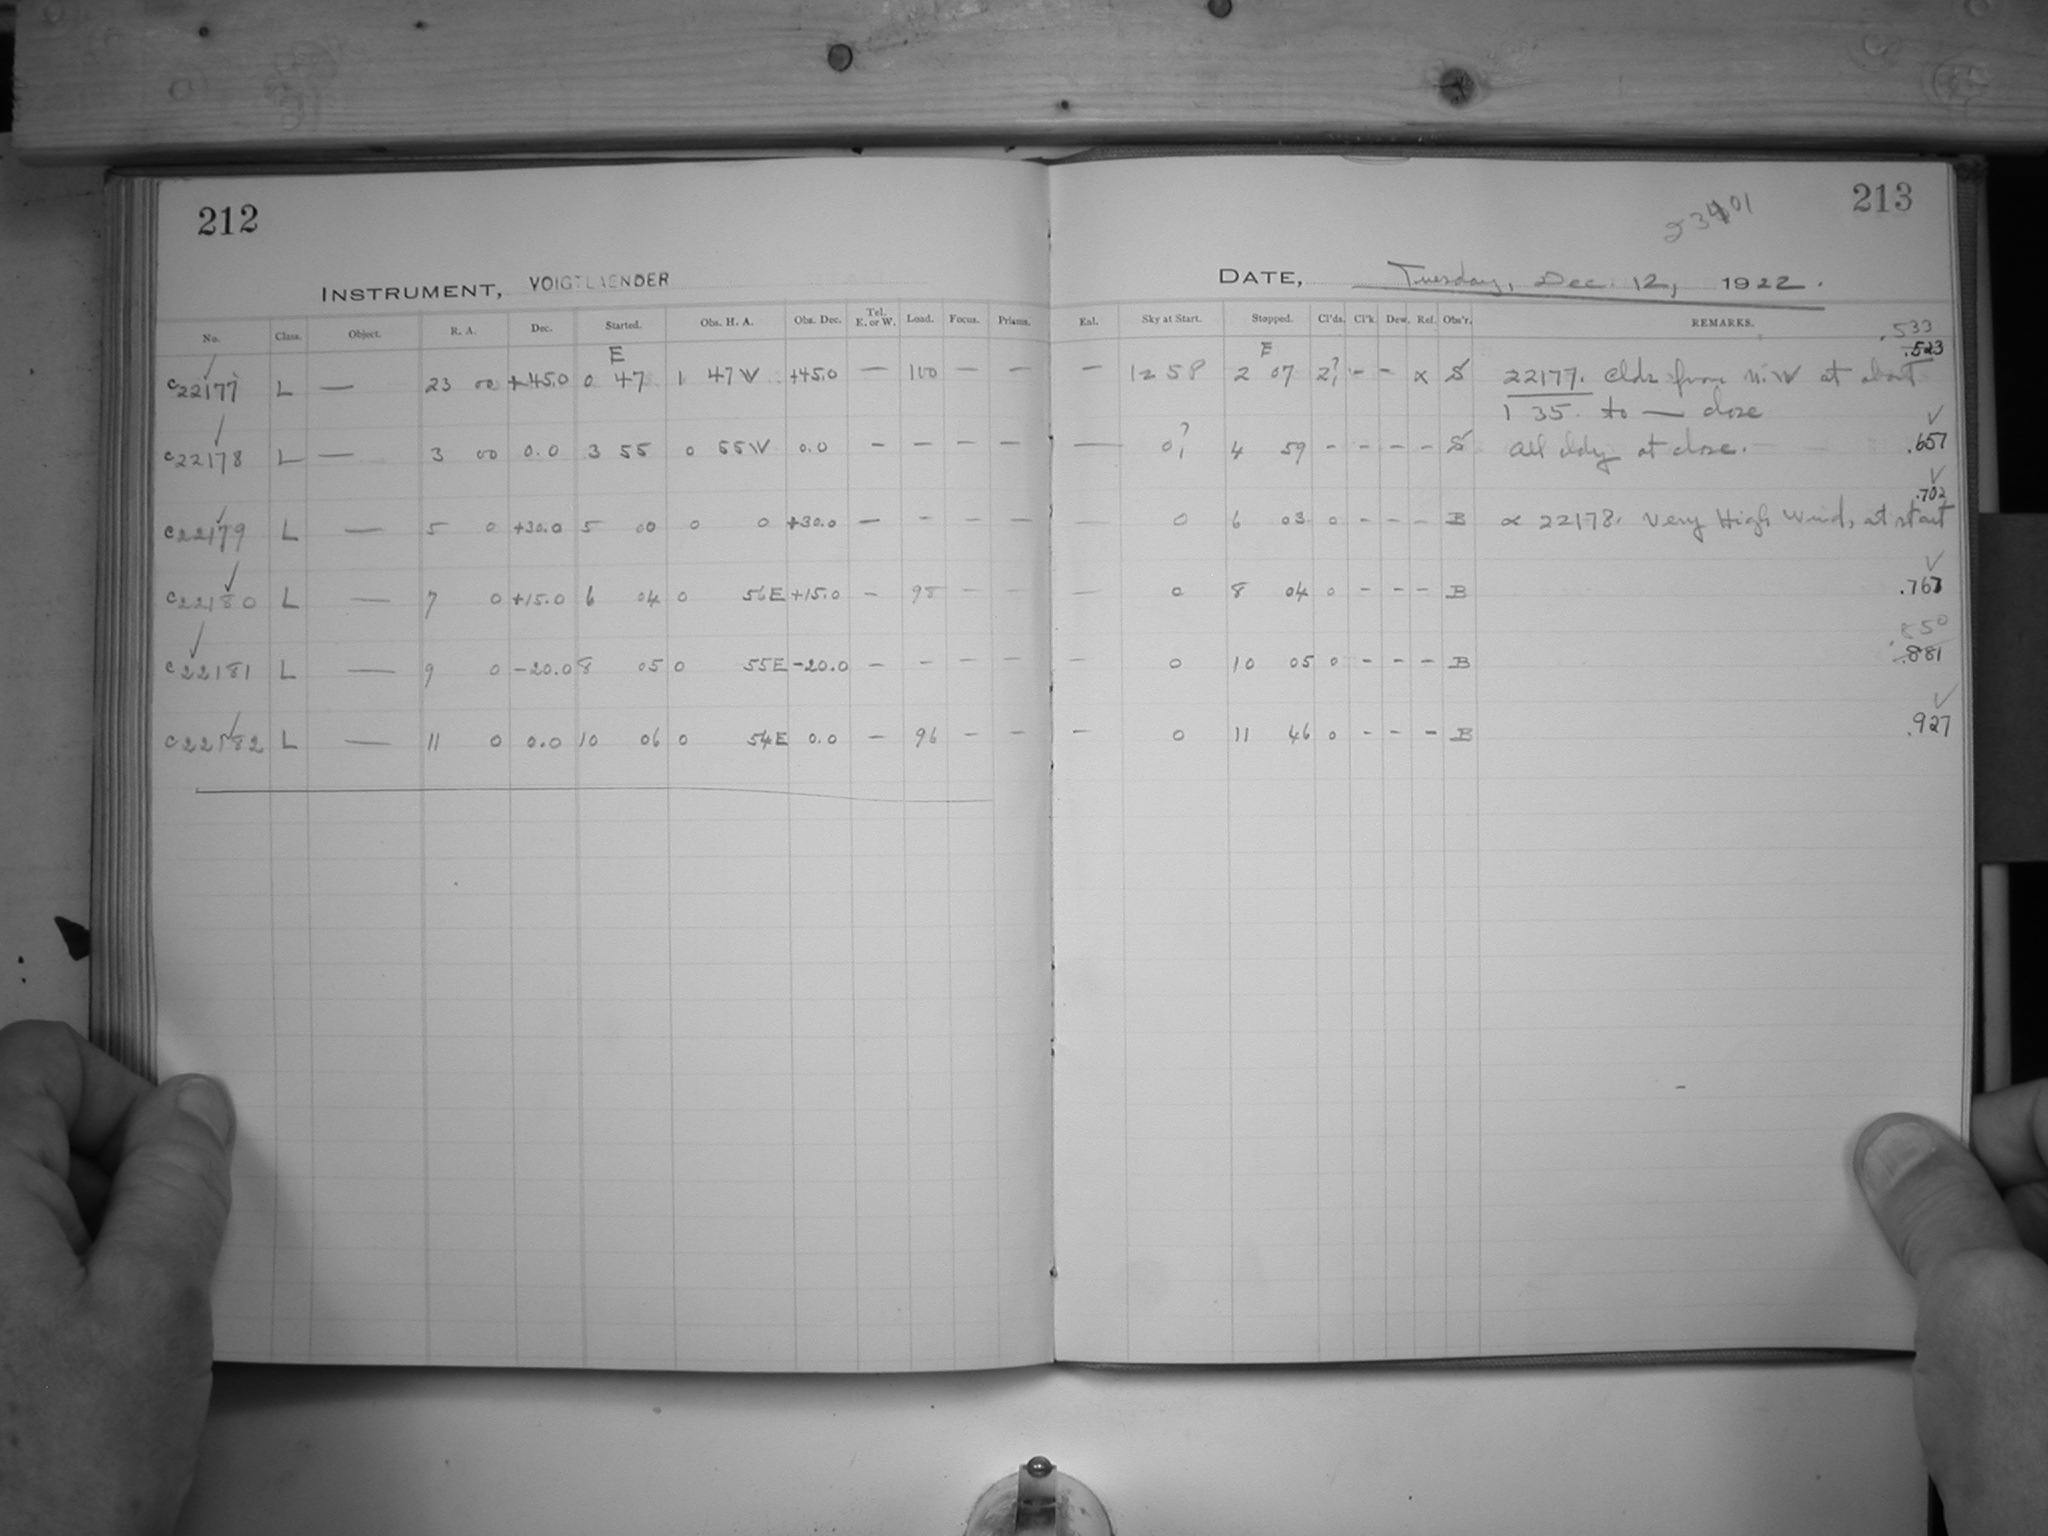 212
213
23401
INSTRUMENT, VOIGTLAENDER
DATE, Tuesday, Dec. 12, 1922.
No. Class. Object. R. A. Dec. Started. Obs. H. A. Obs. Dec. Tel. E. or W. Load. Focus. Prisms. Eal. Sky at Start. Stopped. Cl'ds. Cl'k. Dew. Ref. Obs'r. REMARKS.
.533
E E .523
c22177 L — 23 00 +45.0 0 47 1 47 W +45.0 — 100 — — — 12 58 2 07 2? - - x S 22177. Clds from N.W at about
1 35. to — close
c22178 L — 3 00 0.0 3 55 0 55 W 0.0 — — — — — 0? 4 59 - - - - S All cldy at close. .657
.702
c22179 L — 5 0 +30.0 5 00 0 0 +30.0 — - - — — 0 6 03 0 - - - B α 22178. Very High Wind, at start
c22180 L — 7 0 +15.0 6 04 0 56E +15.0 - 98 - - — 0 8 04 0 - - - B .767
.850
c22181 L — 9 0 -20.0 8 05 0 55E -20.0 - - - - - 0 10 05 0 - - - B .881
c22182 L — 11 0 0.0 10 06 0 54E 0.0 - 96 - - - 0 11 46 0 - - - B .927